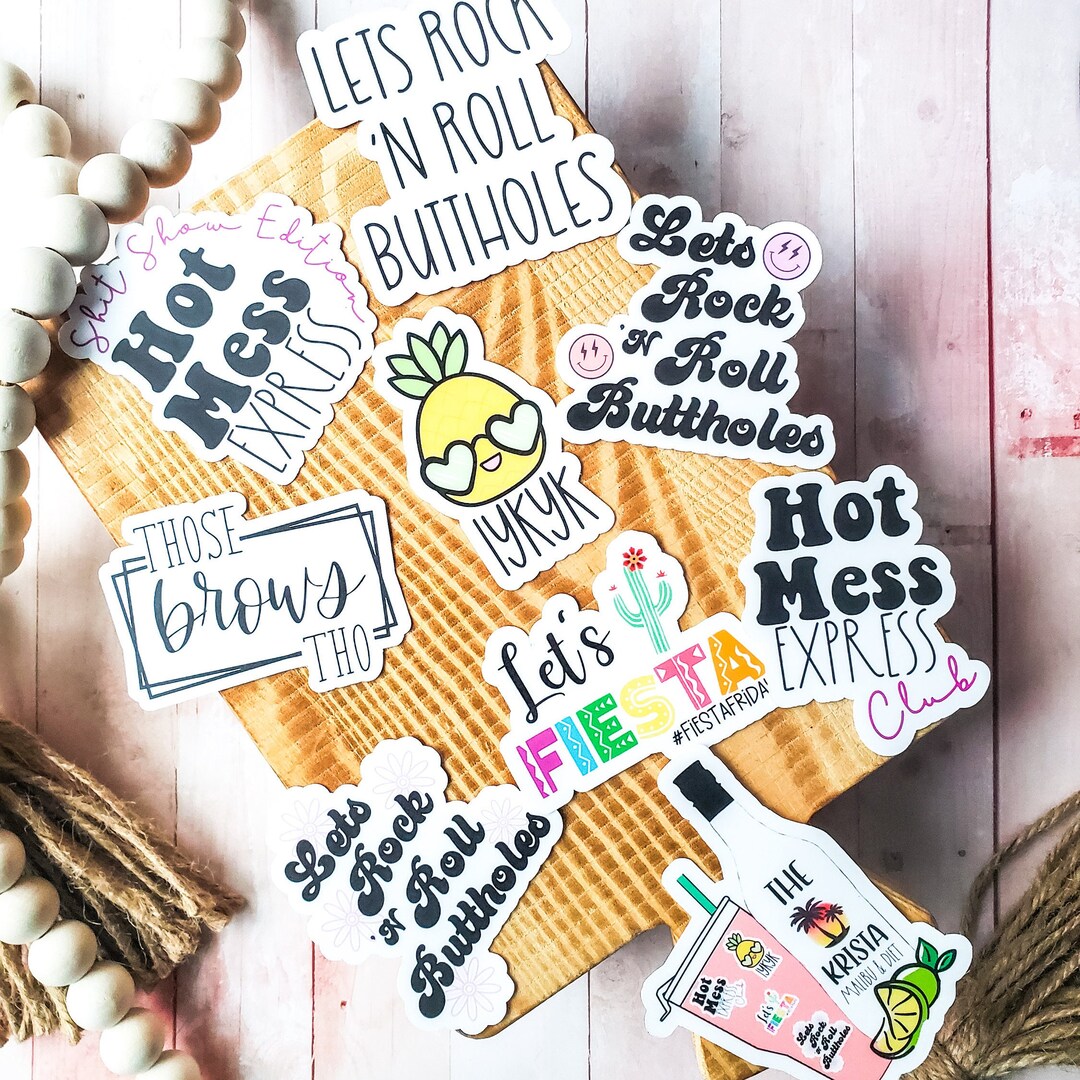 LETS ROCK
'N ROLL
BUTTHOLES
Shit Show Edition
Hot
Mess
EXPRESS
Lets
Rock
'N Roll
Buttholes
IYKYK
THOSE
brows
THO
Hot
Mess
EXPRESS
Club
Let's
FIESTA
#FiESTAFRiDAY
Lets
Rock
'N Roll
Buttholes
THE
KRISTA
MALIBU & DIET
IYKYK
Hot
Mess
EXPRESS
Club
Let's
FIESTA
Lets
Rock
'N Roll
Buttholes